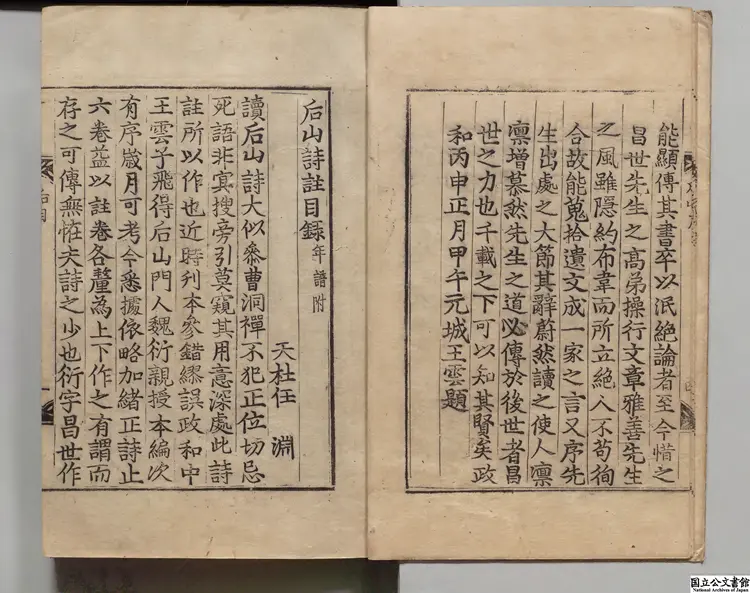 能顯傳其書卒以泯絶論者至今惜之
昌世先生之髙弟操行文章雅善先生
之風雖隱約布韋而所立絶人不苟徇
合故能蒐拾遺文成一家之言又序先
生出處之大節其辭蔚然讀之使人凛
凛增慕然先生之道必傳於後世者昌
世之力也千載之下可以知其賢矣政
和丙申正月甲午元城王雲題
后山詩註目録年譜附
天社任淵
讀后山詩大似叅曹洞禪不犯正位切忌
死語非㝠搜旁引莫窺其用意深處此詩
註所以作也近時刋本叅錯繆誤政和中
王雲子飛得后山門人魏衍親授本編次
有序歳月可考今悉據依略加緒正詩止
六卷益以註卷各釐為上下作之有謂而
存之可傳無恠夫詩之少也衍字昌世作
国立公文書館
National Archives of Japan